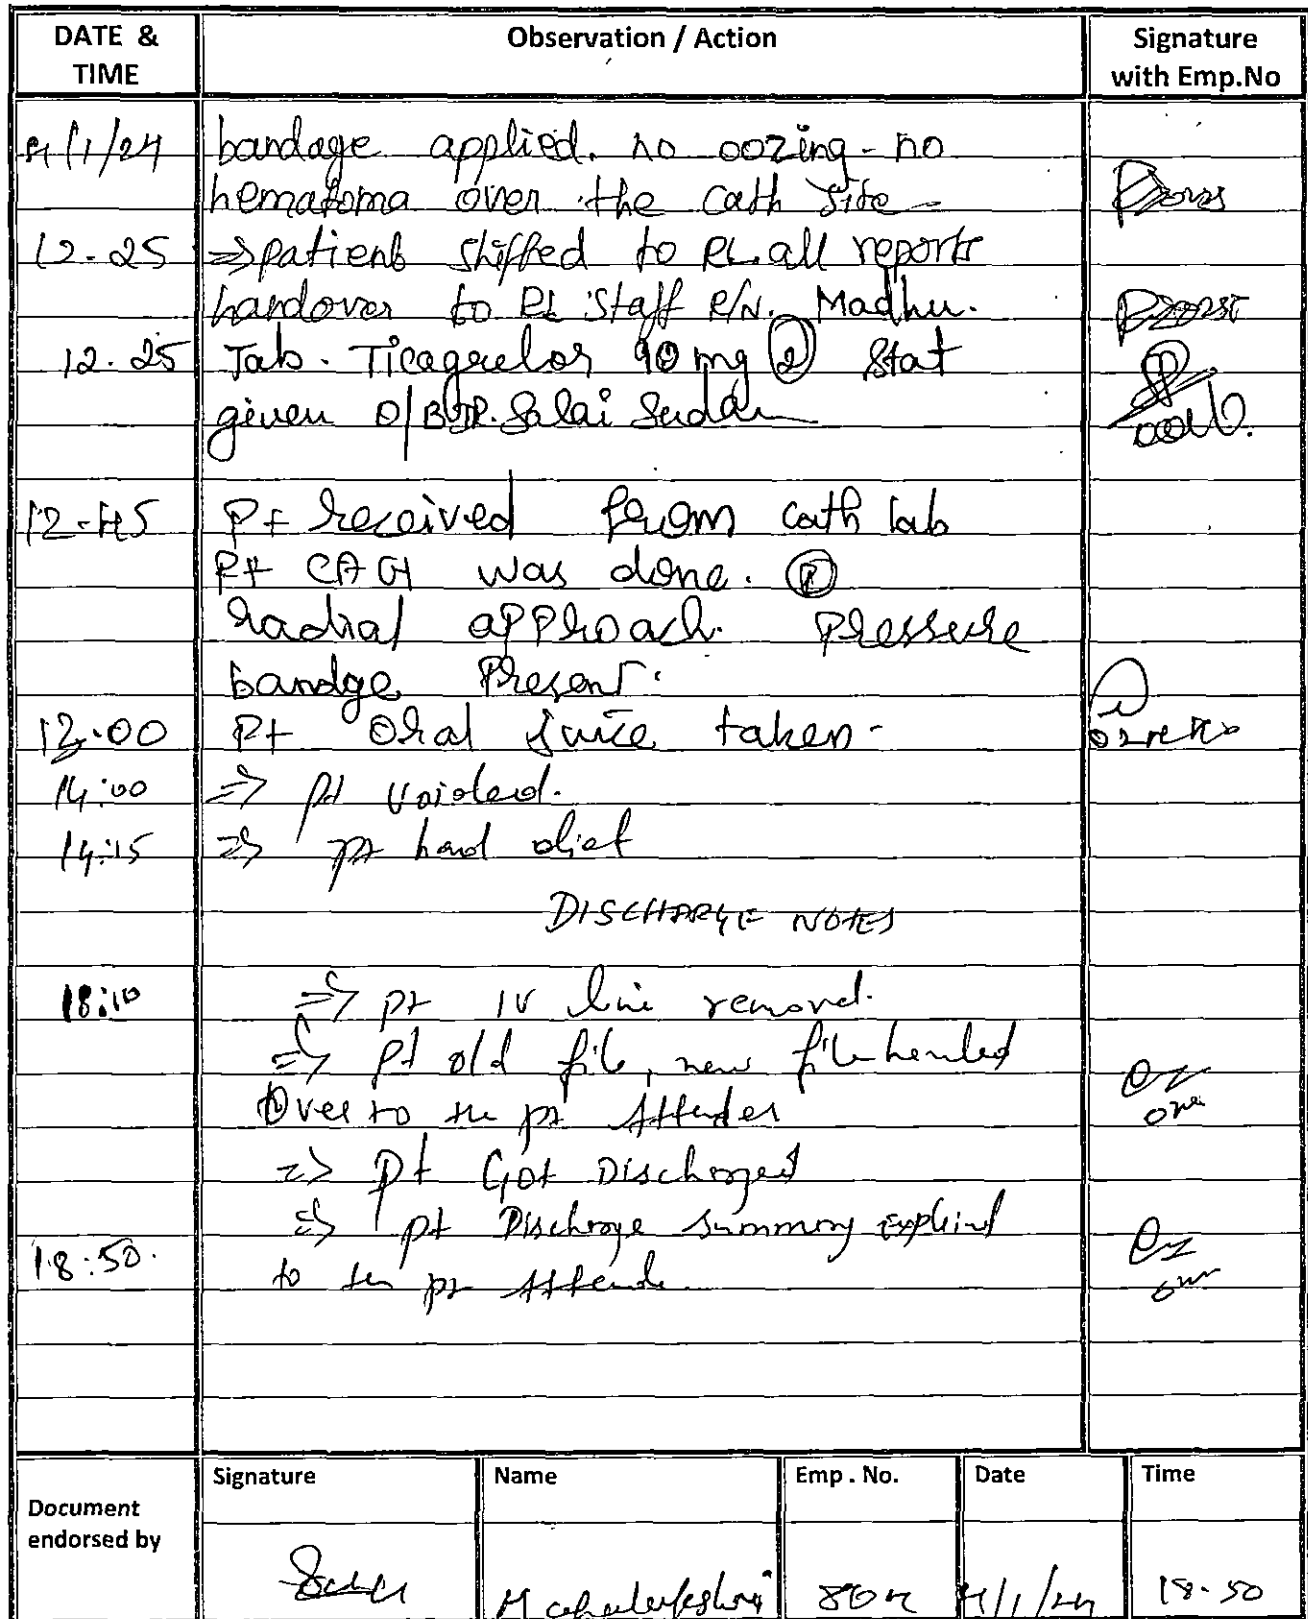 DATE & TIME Observation / Action Signature with Emp.No
/1/24 bandage applied. no oozing - no
hematoma over the cath site -
12-25 ⇒ patient shiffed to RL. all reports
handover to RL staff R/N. Madhu.
12.25 Tab. Ticagrelor 90 mg ② Stat
given O/B DR. Salai Sudan
12-45 Pt received from cath lab
Pt CAG was done. Ⓡ
radial approach. Pressure
bandge Present.
12.00 Pt Oral juice taken -
14:00 ⇒ pt voided.
14:15 ⇒ pt had diet
DISCHARGE NOTES
18:10 ⇒ pt IV line removed.
⇒ pt old file, new file handed
Over to the pt Attender
⇒ pt Got Discharged
⇒ pt Discharge summary Explind
18:50. to the pt Attende
Document endorsed by Signature Name Emp . No. Date Time
/1/24 18-50